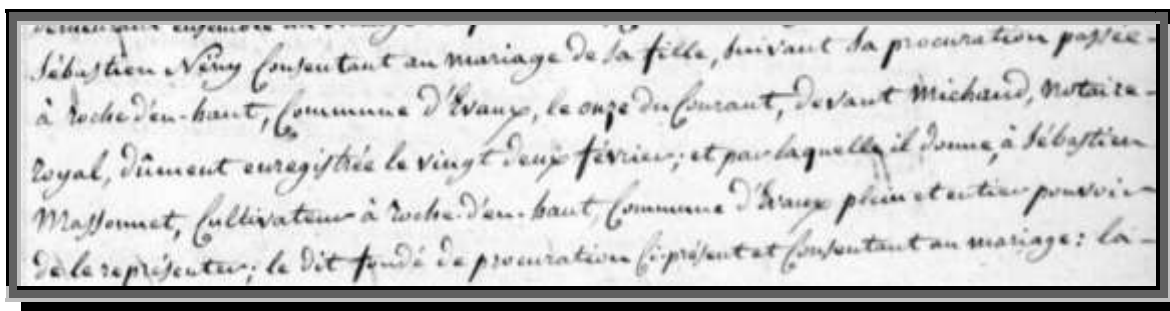 Sébastien Nény Consentant au mariage de sa fille, suivant sa procuration passée
à Roche d'en-haut, Commune d'Evaux, le onze du Courant, devant Michaud, Notaire
Royal, dûment enregistrée le vingt deux février; et par laquelle il donne, à Sébastien
Massonnet, Cultivateur à Roche d'en-haut, Commune d'Evaux plein et entier pouvoir
de le représenter; le dit fondé de procuration Ci-présent et Consentant au mariage: la